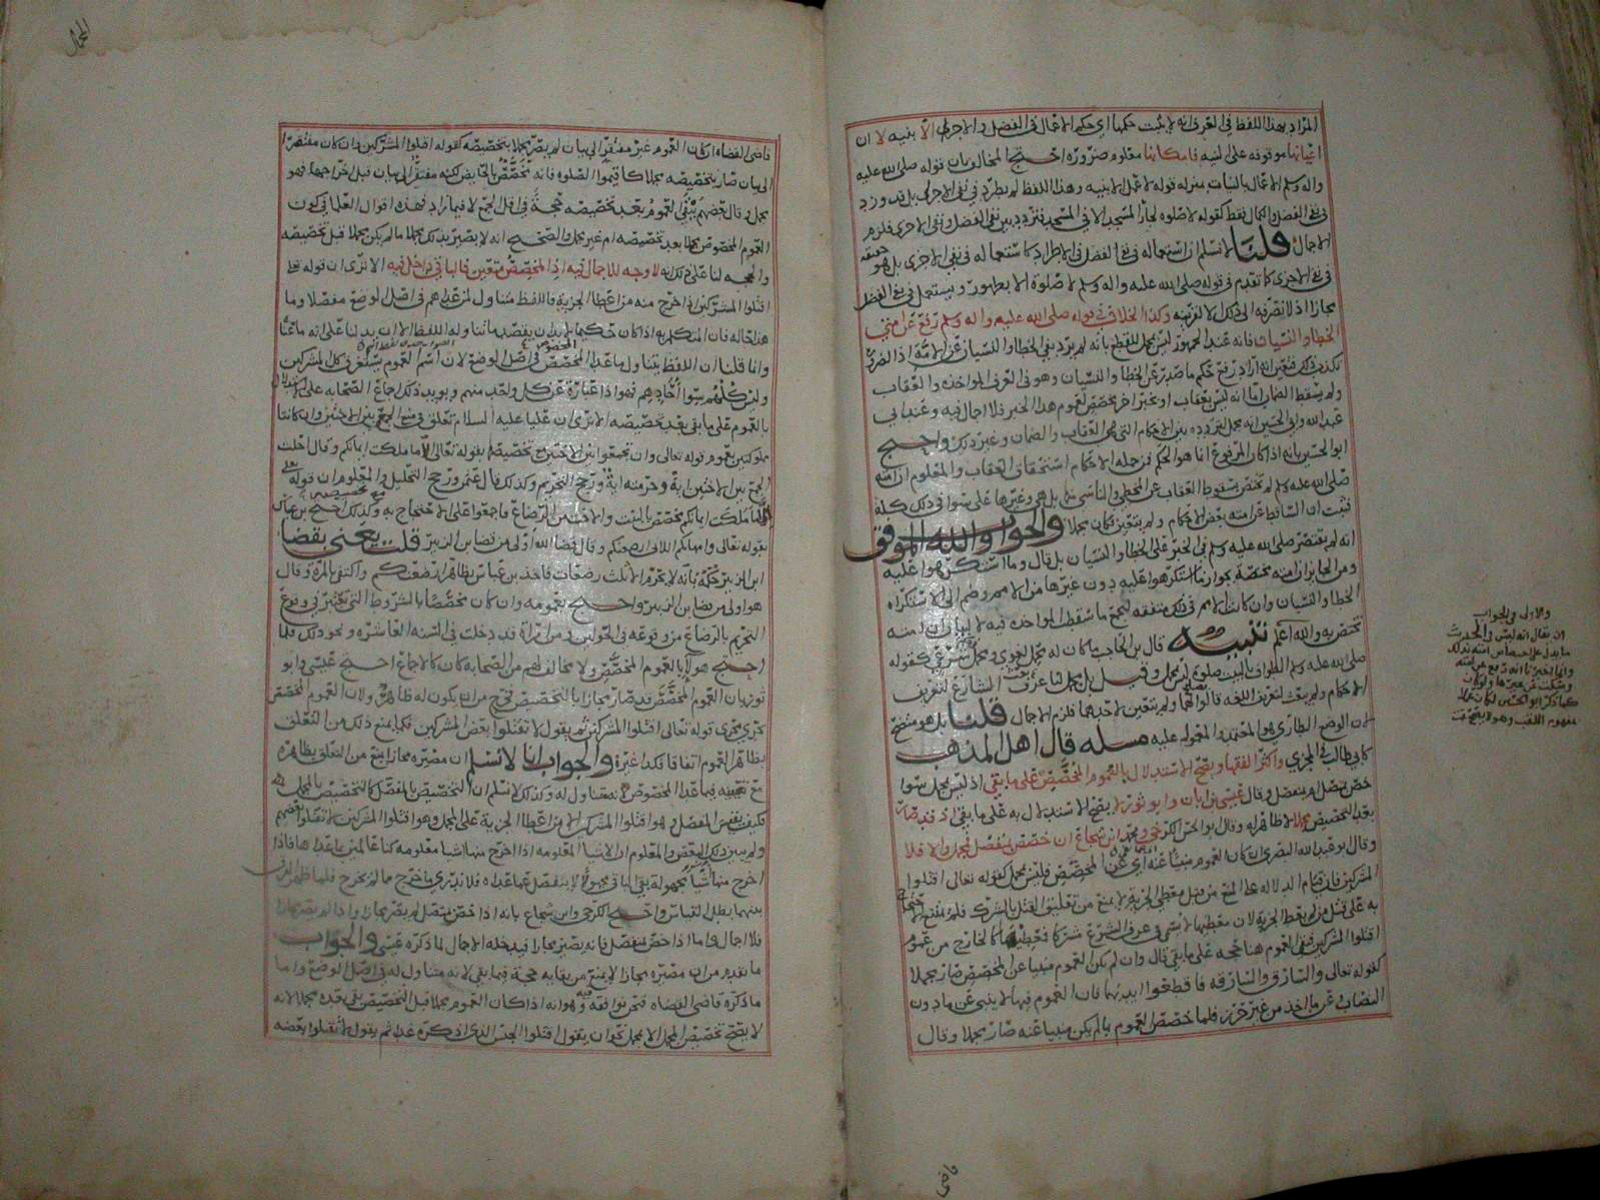 المراد بهذا اللفظ في العرف انه لا يثبت حكمها اي حكم الاعمال في الفضل والاجزى الا بنيه لا ان
اثباتها موقوفه على النيه فامكاننا معلوم ضروره احتج المخالف بان قوله صلى الله عليه
واله وسلم الاعمال بالنيات بمنزله قوله لا عمل الا بنيه وهذا اللفظ لم يطرد في نفي الاجزى بل قد ورد
في نفي الفضل والكمال فقط كقوله لا صلوه لجار المسجد الا في المسجد فتردد بين نفي الفضل ونفي الاجزى فلزم
الاجمال قلنا لا نسلم ان استعماله في نفي الفضل في الاطراد كاستعماله في نفي الاجزى بل هو حقيقه
في نفي الاجزى كما تقدم في قوله صلى الله عليه واله وسلم لا صلوه الا بطهور ويستعمل في نفي الفضل
مجازا اذ لا يصرفه الى ذلك الا لقرينه وكذا الخلاف في قوله صلى الله عليه واله وسلم رفع عن امتي
الخطا والنسيان فانه عند الجمهور ليس بمجمل للقطع بانه لم يرد نفي الخطا والنسيان عن الامه اذ الضروره
تكذب ذلك فتعين انه اراد رفع حكم ما صدر عن الخطا والنسيان وهو في العرف المواخذه والعقاب
ولم يسقط الضمان اما انه ليس بعقاب او بخبر اخر يخصص لعموم هذا الخبر فلا اجمال فيه وعند ابي
عبد الله وابي الحسين انه مجمل لتردده بين الاحكام التي هي العقاب والضمان وغير ذلك واحتج
ابو الحسين بانه اذا كان المرفوع انما هو الحكم فمن جمله الاحكام استحقاق العقاب والمعلوم ان امته
صلى الله عليه وسلم لم تختص بسقوط العقاب عن المخطي والناسي منها بل هي وغيرها على سوا في ذلك كله
فثبت ان الساقط عن امته بعض الاحكام ولم يتعين فكان مجملا والجواب والله الموفق
انه لم يقتصر صلى الله عليه وسلم في الخبر على الخطا والنسيان بل قال وما استكرهوا عليه
ومن الجايز ان امته مختصه بجواز ما استكرهوا عليه دون غيرها من الامم وضم الى الاستكراه
الخطا والنسيان وان كانت الامم في ذلك متفقه لتجمع ما سقطت المواخذه فيه لا لبيان ان امته
تختص به والله اعلم تنبيه قال بن الحاجب ما كان له محمل لغوي ومحمل شرعي كقوله
صلى الله عليه وسلم الطواف بالبيت صلوه ليس بمجمل وقيل بل مجمل لنا عرف الشارع لتعريف
الاحكام ولم يبعث لتعريف اللغه قالوا يصلح لهما ولم يتعين لاحدهما فلزم الاجمال قلنا بل هو متضح
لان الوضع الطاري هو المعتمد والمعول عليه مسله قال اهل المذهب
كابي طالب في المجزي واكثر الفقها ويصح الاستدلال بالعموم المخصص على ما بقي اذ ليس بمجمل سوا
خصص بمتصل او منفصل وقال عيسى بن ابان وابو ثور لا يصح الاستدلال به على ما بقي اذ قد صار
بعد التخصيص مجملا لا ظاهر له وقال ابو الحسن الكرخي ومحمد ابن شجاع ان خصص بمنفصل فمجمل والا فلا
وقال ابو عبد الله البصري ان كان العموم منبيا عنه اي عن المخصص فليس بمجمل كقوله تعالى اقتلوا
المشركين فان قيام الدلاله على المنع من قتل معطي الجزيه لا يمنع من تعليق القتل بالشرك فلم يمتنع الاحتجاج
به على قتل من لم يعط الجزيه لان معطيها لا يسمى في عرف الشرع مشركا فمعطيها كالخارج من عموم
اقتلوا المشركين فبقي العموم هنا حجه على ما بقي قال وان لم يكن العموم منبيا عن المخصص صار مجملا
كقوله تعالى والسارق والسارقه فاقطعوا ايديهما فان العموم فيها لا ينبي عن ما دون
النصاب وعن ما اخذ من غير حرز فلما خصص العموم بما لم يكن منبيا عنه صار مجملا وقال
والاولى في الجواب
ان يقال انه ليس في الحديث
ما يدل على اختصاص امته بذلك
وانما اخبرنا انه رفع عن امته
وسكت عن غيرها ولو كان
كما ذكر ابو الحسين لكان عملا
بمفهوم اللقب وهو لا يصح تمت
قاضي
المجمل
قاضي القضاه ان كان العموم غير مفتقر الى بيان لم يصر مجملا بتخصيصه كقوله اقتلوا المشركين وان كان مفتقرا
الى بيان صار بتخصيصه مجملا كاقيموا الصلوه فانه تخصص بالحايض لكنه مفتقر الى بيان قبل اخراجها فهو
مجمل وقال بعضهم يبقى العموم بعد تخصيصه حجة في اقل الجمع لا فيما زاد فهذه اقوال العلما في كون
العموم المخصوص مجملا بعد تخصيصه ام غير مجمل والصحيح انه لا يصير بذلك مجملا ما لم يكن مجملا قبل تخصيصه
والحجه لنا على ذلك انه لا وجه للاجمال فيه اذ المخصص متعين فالباقي داخل فيه الا ترى ان قوله تعالى
اقتلوا المشركين اذا خرج منه من اعطا الجزيه فاللفظ متناول لمن عداهم في اصل الوضع مفصلا وما
هذا حاله فان المتكلم به اذا كان حكيما لا بد ان يقصد ما تناوله اللفظ الا ان يدلنا على انه ما عناه
وانما قلنا ان اللفظ يتناول ما عدا المخصص في اصل الوضع لان اسم العموم يستغرق كل المشركين
وليس كلهم سوا احادهم فهو اذا عبارة عن كل واحد منهم ويويد ذلك اجماع الصحابه على الاستدلال
بالعموم على ما بقي بعد تخصيصه الا ترى ان عليا عليه السلام تعلق في منع الجمع بين الاختين وان كانتا
مملوكتين بعموم قوله تعالى وان تجمعوا بين الاختين مع تخصيصه بقوله تعالى الا ما ملكت ايمانكم وقال احلت
الجمع بين الاختين اية وحرمته اية ورجح التحريم وكذلك قال عثمن ورجح التحليل والمعلوم ان قوله
الا ما ملكت ايمانكم مخصص بالبنت والاخت من الرضاع فاجمعوا على الاحتجاج به وكذلك احتج بن عباس
بقوله تعالى وامهاتكم اللاتي ارضعنكم وقال قضا الله اولى من قضا ابن الزبير قلت يعني بقضا
ابن الزبير حكمه بانه لا يحرم الا ثلث رضعات فاخذ بن عباس بظاهر ارضعنكم واكتفى بالمره وقال
هو اولى من قضا بن الزبير واحتج بعمومه وان كان مخصصا بالشروط التي تعتبر في وقوع
التحريم بالرضاع من وقوعه في الحولين ومن امراة قد دخلت في السنه العاشره ونحو ذلك فلما
احتج هولا بالعموم المخصص ولا مخالف لهم من الصحابه كان كالاجماع احتج عيسى وابو
ثور بان العموم المخصص قد صار مجازا بالتخصيص فخرج من ان يكون له ظاهر ولان العموم المخصص
يجري مجرى قوله تعالى اقتلوا المشركين ثم يقول لا تقتلوا بعض المشركين فكما يمنع ذلك من التعلق
بظاهر العموم اتفاقا فكذا غيره والجواب انا لا نسلم ان مصيره مجازا يمنع من التعلق بظاهره
مع تعيينه فيما عدا المخصوص انه متناول له وكذلك لا نسلم ان التخصيص بالمفصل كالتخصيص بالمجمل لانه
كيف يقيس المفصل وهو اقتلوا المشركين الا من اعطا الجزية على المجمل وهو اقتلوا المشركين لا تقتلوا بعضهم
ولم يبين ذلك البعض والمعلوم ان الاشيا المعلومه اذا اخرج منها اشيا معلومه كنا عالمين بما عداها فاذا
اخرج منها اشيا مجهولة بقي الباقي مجهولا لا ينفصل عما عداه فلا ندري ما خرج مما لم يخرج فلما ظهر الفرق
بينهما بطل القياس واحتج الكرخي وابن شجاع بانه اذا خص بمتصل لم يصر مجازا واذا لم يصر مجازا
فلا اجمال واما اذا خص بمنفصل فانه يصير مجازا فيدخله الاجمال لما ذكره عيسى والجواب
ما تقدم من ان مصيره مجازا لا يمنع من بقايه حجة فيما بقي لانه متناول له في اصل الوضع واما
ما ذكره قاضي القضاه فنحن نوافقه فيه وهو انه اذا كان العموم مجملا قبل التخصيص بقي بعده مجملا لانه
لا يصح تخصيص المجمل الا بمجمل نحو ان يقول اقتلوا الجنس الذي اذكره غدا ثم يقول لا تقتلوا بعضه